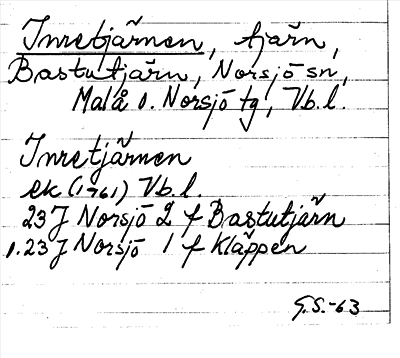 Inretjärnen, tjärn,
Bastutjärn, Norsjö sn,
Malå o. Norsjö tg, Vb.l.
Inretjärnen
ek (1961) Vb.l.
23J Norsjö 2 f Bastutjärn
1.23J Norsjö 1 f Kläppen
G.S.-63